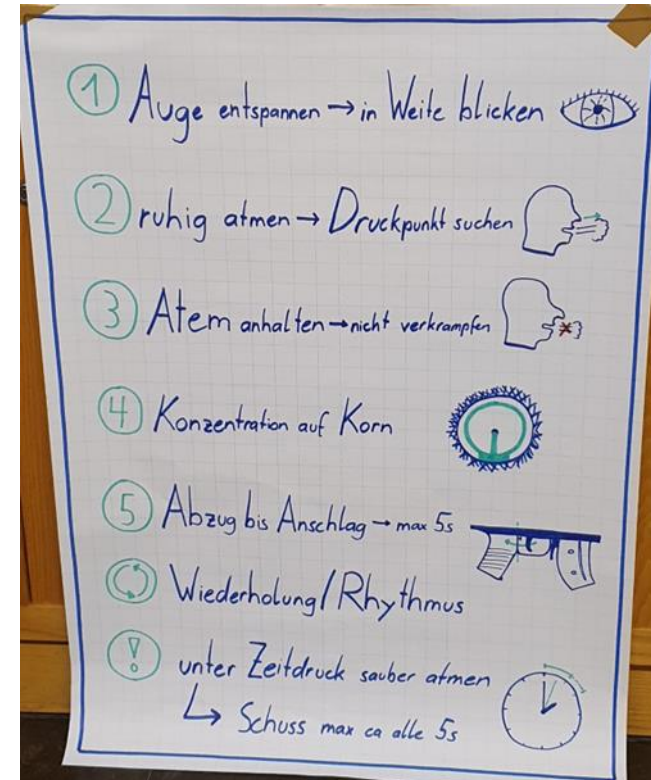 1 Auge entspannen → in Weite blicken
2 ruhig atmen → Druckpunkt suchen
3 Atem anhalten → nicht verkrampfen
4 Konzentration auf Korn
5 Abzug bis Anschlag → max 5s
Wiederholung / Rhythmus
! unter Zeitdruck sauber atmen
↳ Schuss max ca alle 5s